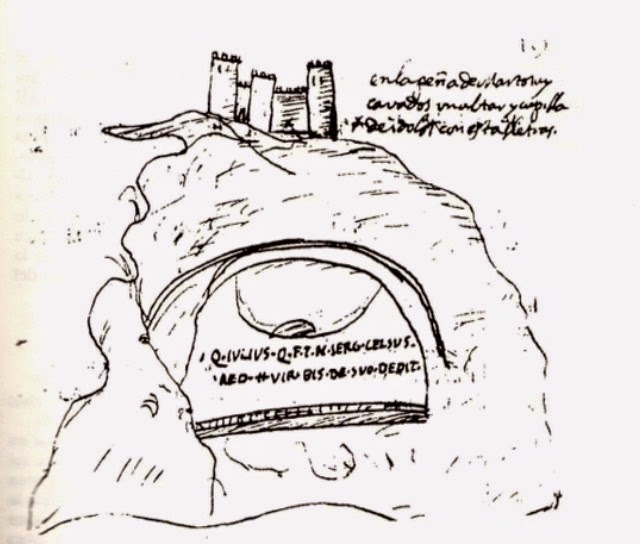 en la peña de Martos ay
cavados vn altar y capilla
de idolos con estas letras.
Q·IVLIVS·Q·F·T·N·SERG·CELSVS·
AED·II·VIR·BIS·DE·SVO·DEDIT·